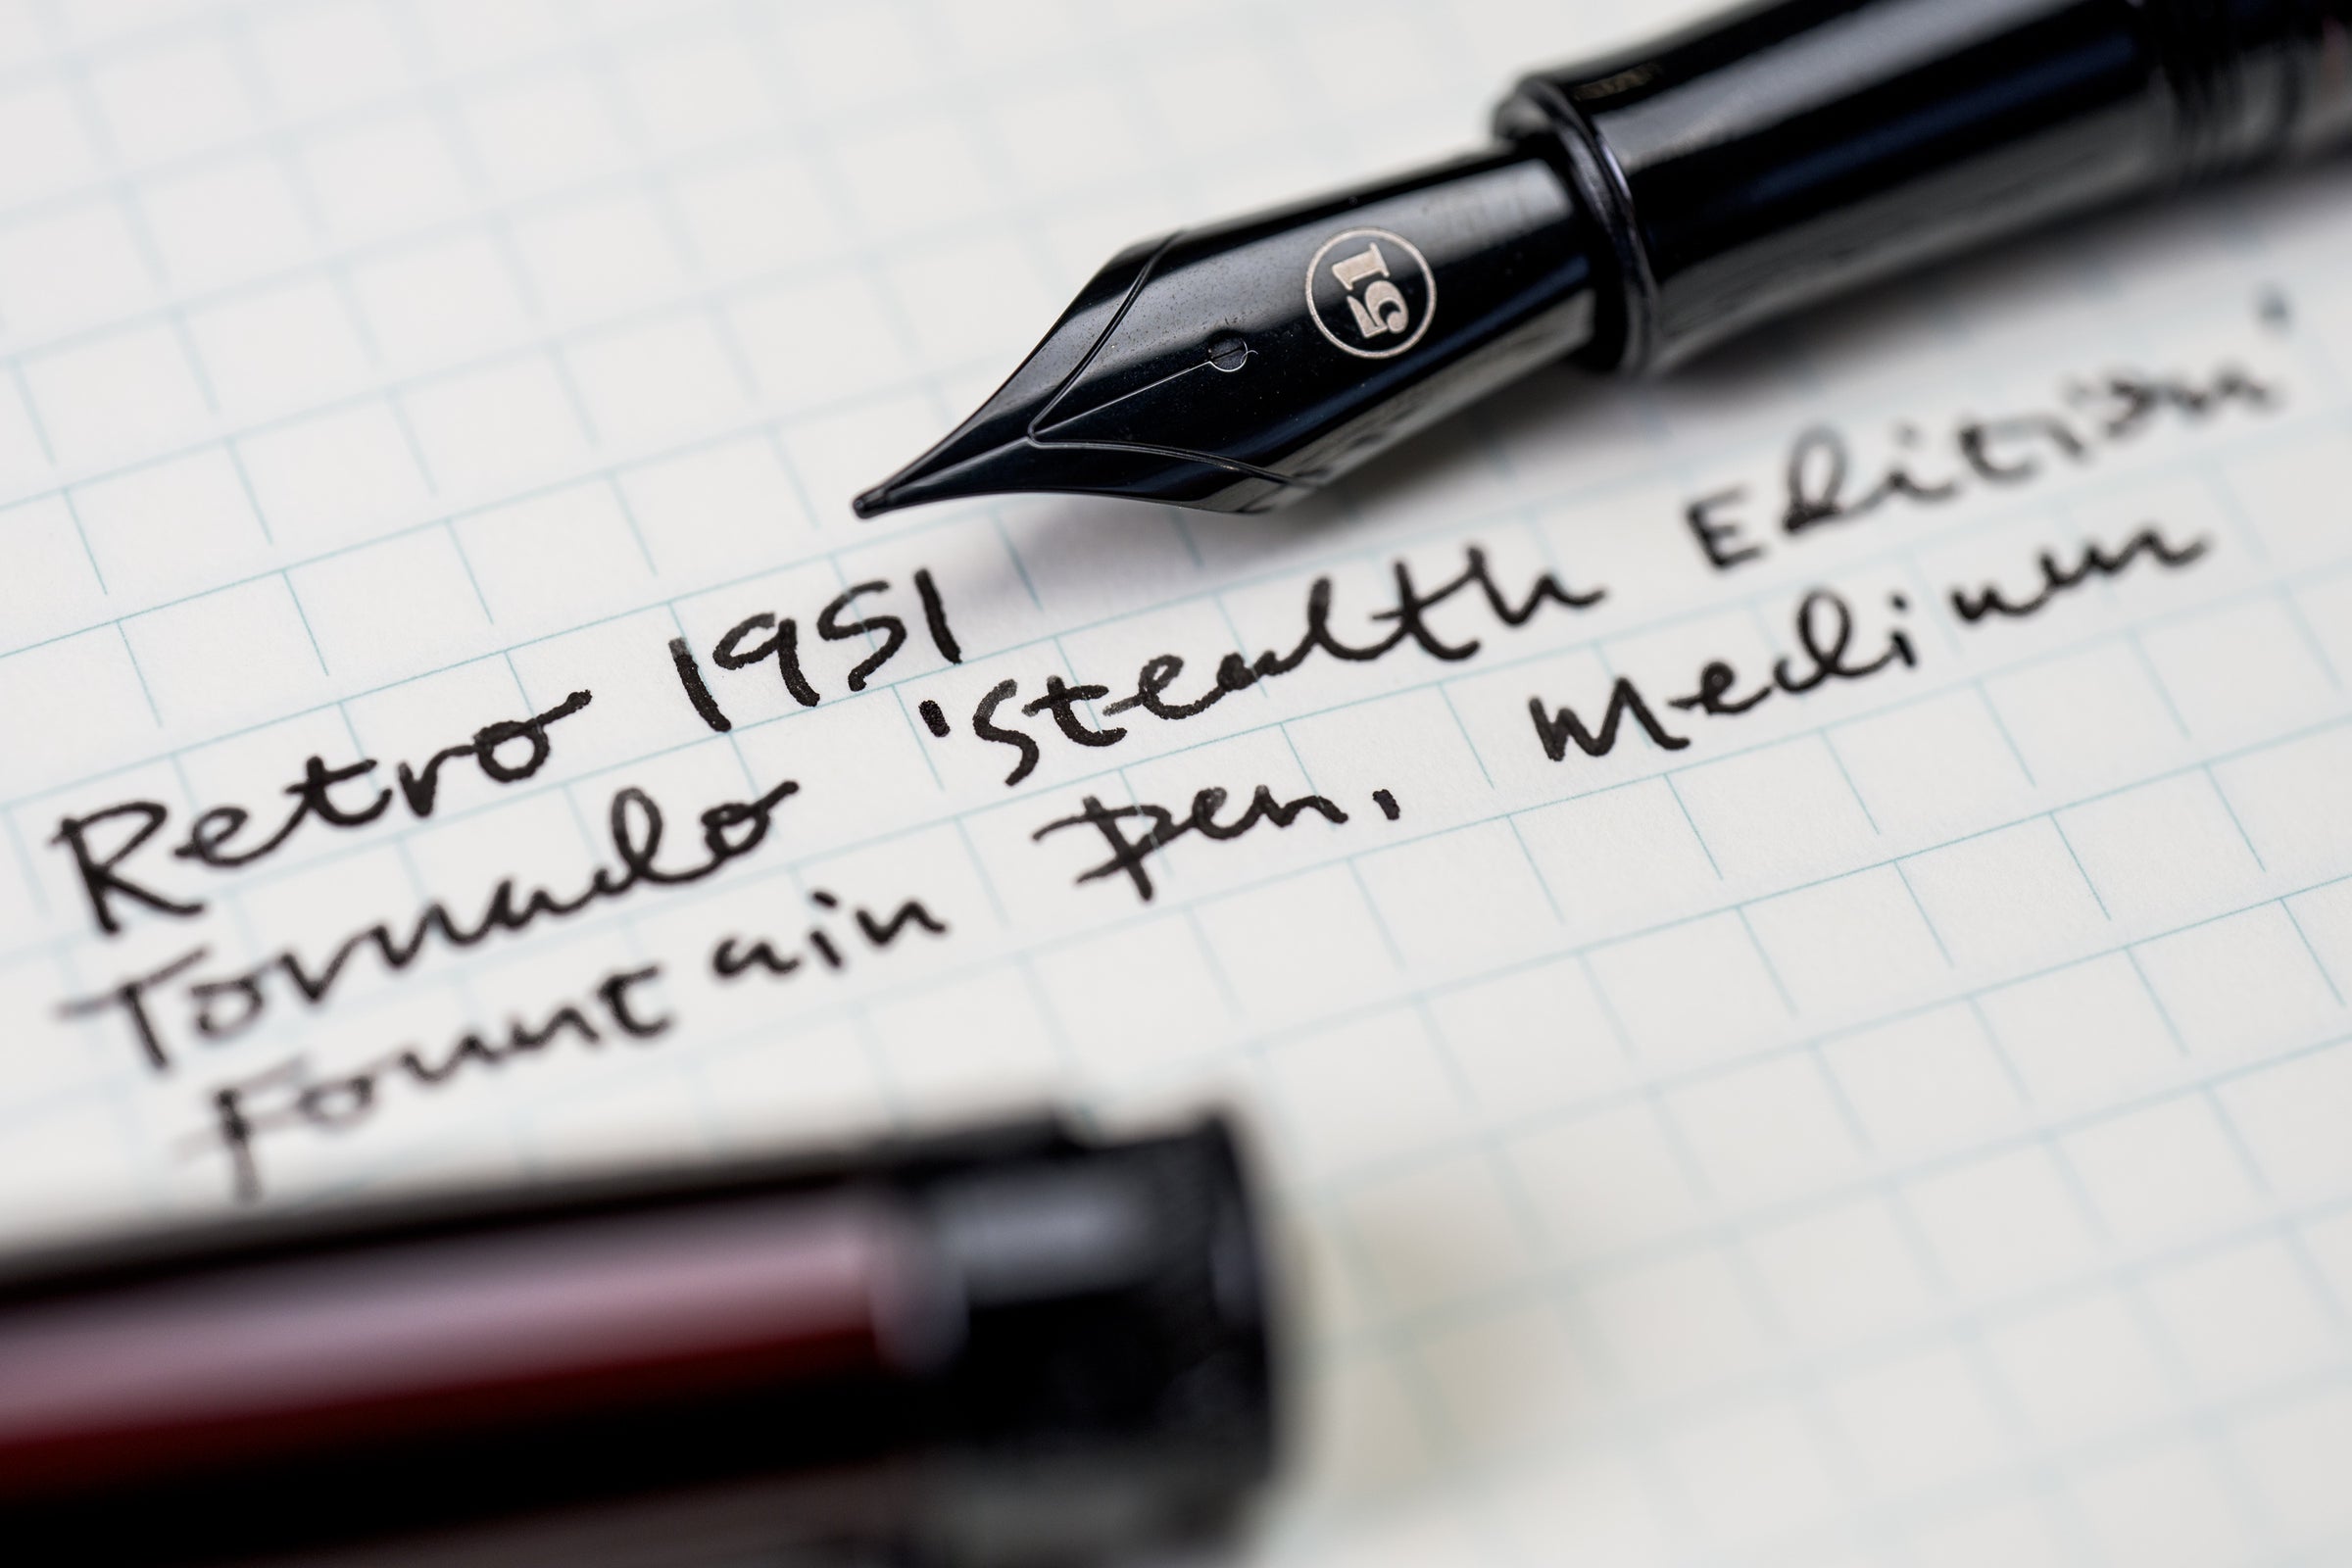 51
Retro 1951
Tornado 'Stealth Edition'
Fountain Pen. Medium